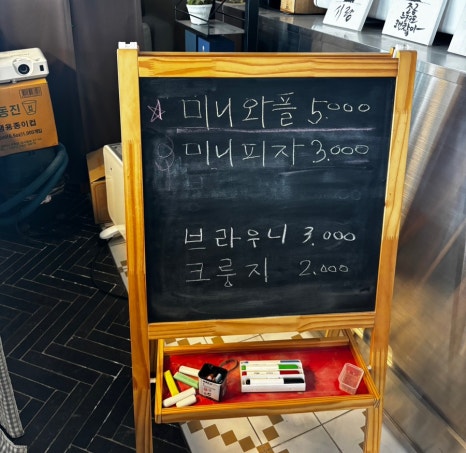 미니와플 5.000
미니피자 3.000
브라우니 3.000
크룽지 2.000
동진